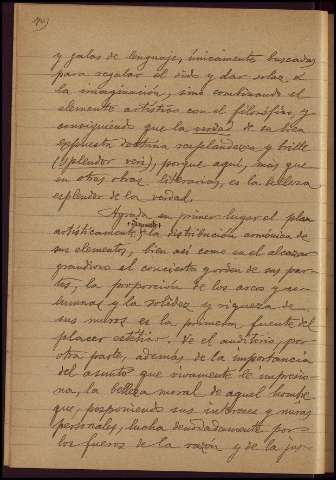 y galas de lenguaje, únicamente buscadas
para regalar el oído y dar solaz á
la imaginación, sino combinando el
elemento artístico con el filosófico, y
consiguiendo que la verdad de su bien
expuesta doctrina resplandezca y brille
(splendor veri), porque aquí, más que
en otras obras literarias, es la belleza
esplendor de la verdad.
Agrada en primer lugar el plan
artísticamente la distribución armónica de
sus elementos, bien así como en el alcázar
grandioso el concierto y orden de sus par-
tes, la proporción de los arcos y co-
lumnas y la solidez y riqueza de
sus muros es la primera fuente del
placer estético. Ve el auditorio, por
otra parte, además de la importancia
del asunto que vivamente le impresio-
na, la belleza moral de aquel hombre
que, posponiendo sus intereses y miras
personales, lucha denodadamente por
los fueros de la razón y de la jus-